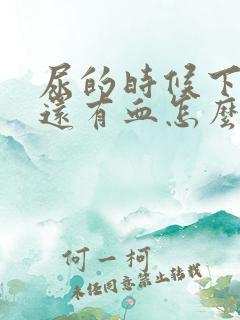 尿的時候下
還有血怎麼
何一柯
未经同意禁止转载